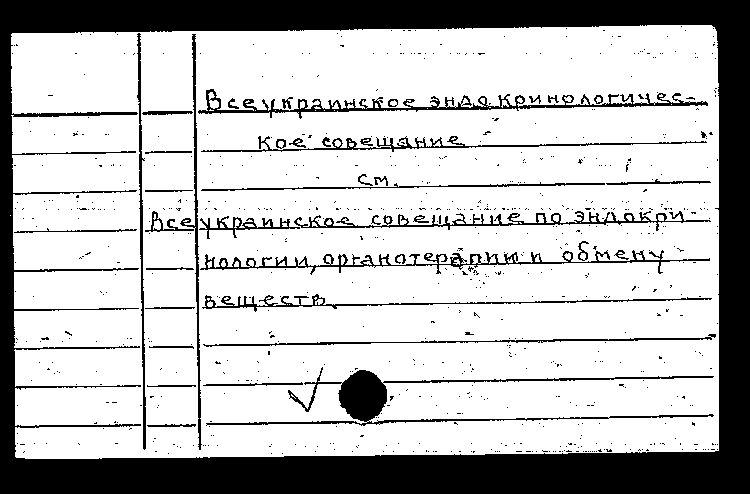 Всеукраинское эндокринологичес-
кое совещание
см.
Всеукраинское совещание по эндокри-
нологии, органотерапии и обмену
веществ.